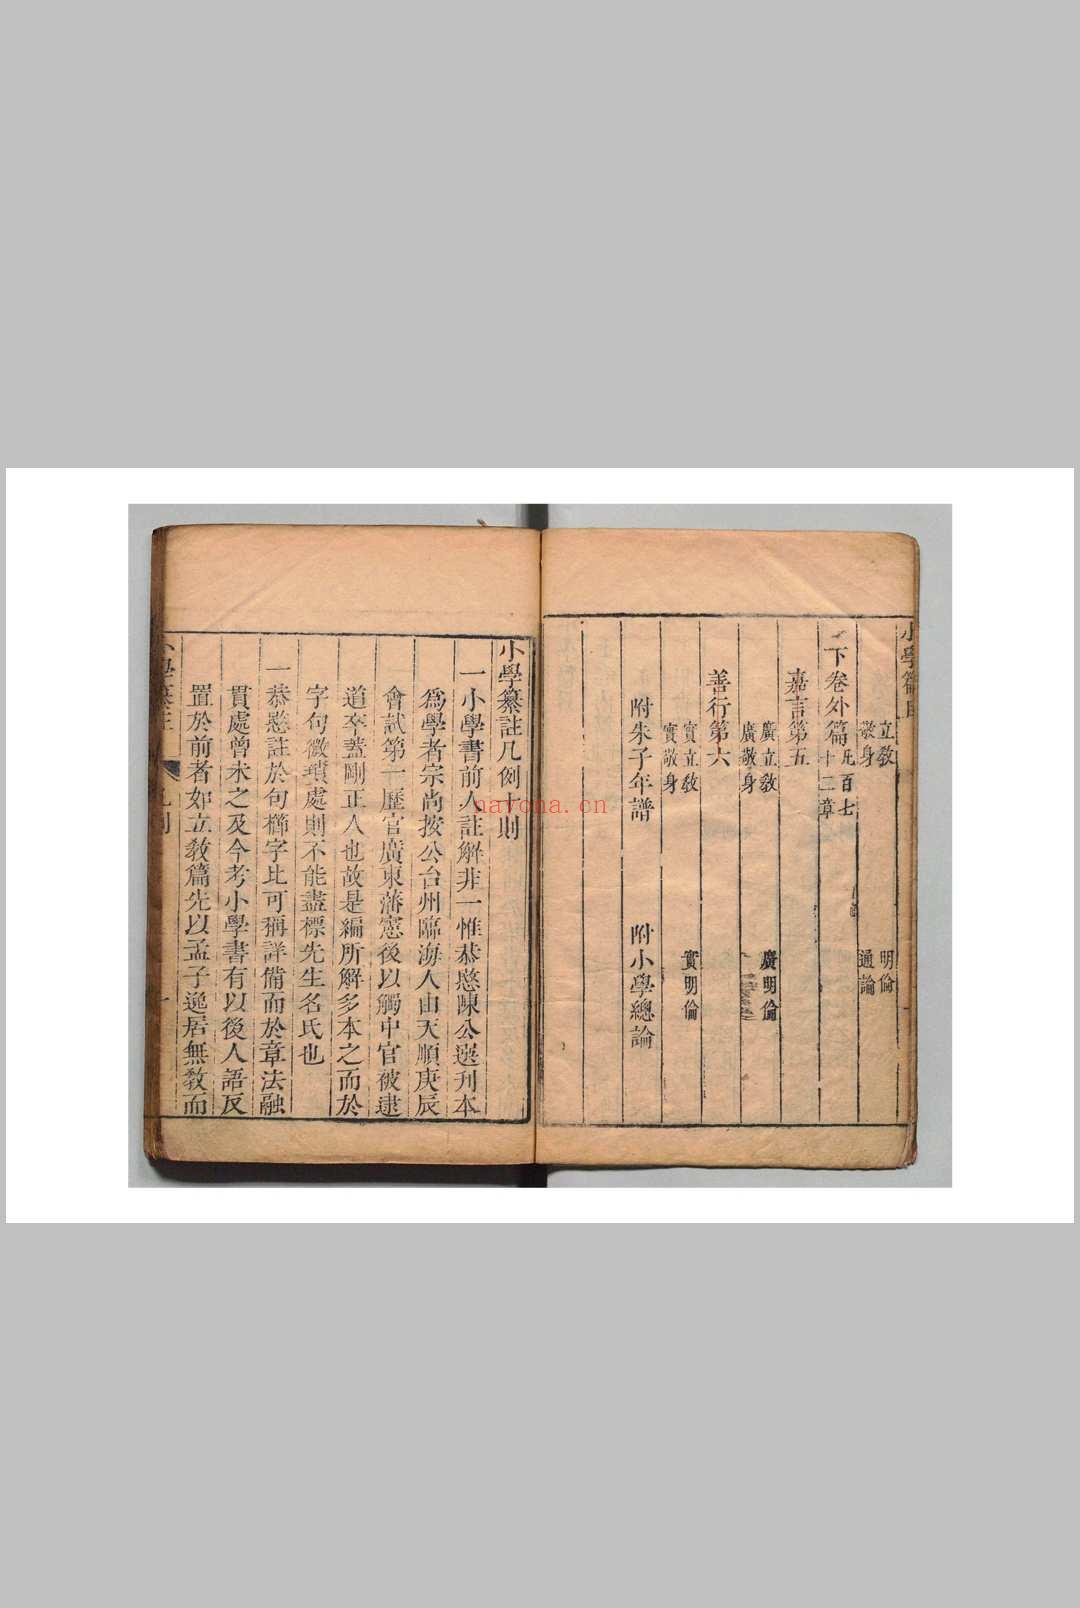 小學篇目
立教
敬身
明倫
通論
下卷外篇
凡百七
十二章
嘉言第五
廣立教
廣敬身
廣明倫
善行第六
實立教
實敬身
實明倫
附朱子年譜
附小學總論
小學纂註凡例十則
一小學書前人註解非一惟恭愍陳公選刊本
爲學者宗尚按公台州臨海人由天順庚辰
會試第一歷官廣東藩憲後以觸中官被逮
道卒蓋剛正人也故是編所解多本之而於
字句微瑣處則不能盡標先生名氏也
一恭愍註於句櫛字比可稱詳備而於章法融
貫處曾未之及今考小學書有以後人語反
置於前者如立教篇先以孟子逸居無教而
小學纂註
凡例
一
nayona.cn